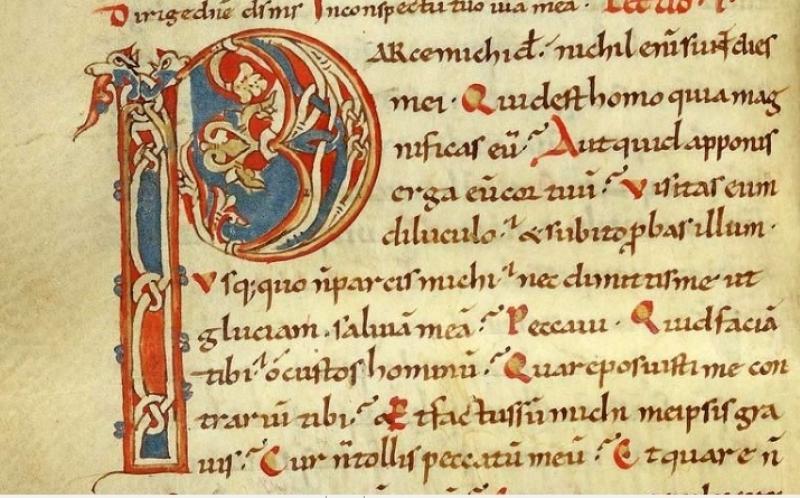 Dirige dñe ds ms Inconspectu tuo uia mea. Lectio. I.
PARce michi dñe. nichil eni sunt dies
mei. Quid est homo quia mag
nificas eū. Aut quid apponis
erga eū cor tuū. Visitas eum
diluculo. & subito ꝓbas illum.
Vsq; quo ñ parcis michi nec dimittis me ut
gluciam saliuā meā. Peccaui. Quid faciā
tibi o custos hominū. Quare posuisti me con
trariū tibi. & factus sū michi meipsi gra
uis. Cur ñ tollis peccatū meū. Et quare ñ